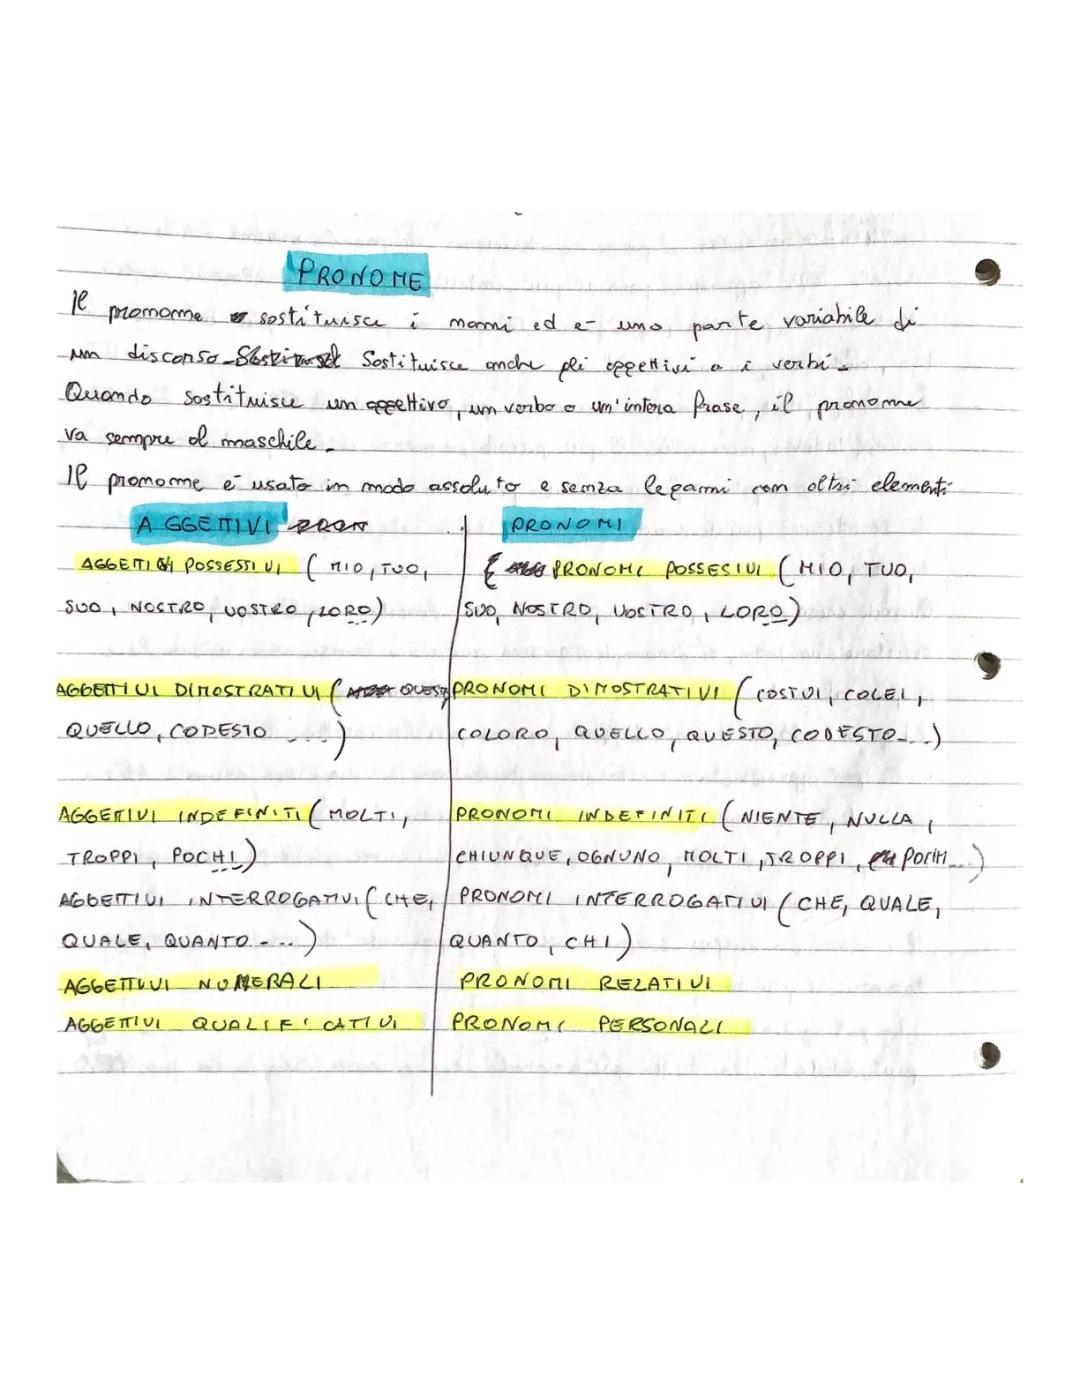 PRONOME
Il pronome sostituisce i nomi ed è una parte variabile di
un discorso. Sostituisce anche gli aggettivi o i verbi.
Quando sostituisce un aggettivo, un verbo o un'intera frase, il pronome
va sempre al maschile.
Il pronome è usato in modo assoluto e senza legami con altri elementi
AGGETTIVI PRONOMI
AGGETTIVI POSSESSIVI (MIO, TUO, PRONOMI POSSESIVI (MIO, TUO,
SUO, NOSTRO, VOSTRO, LORO) SUO, NOSTRO, VOSTRO, LORO)
AGGETTIVI DIMOSTRATIVI ( QUESTO PRONOMI DIMOSTRATIVI (COSTUI, COLEI,
QUELLO, CODESTO ....) COLORO, QUELLO, QUESTO, CODESTO...)
AGGETIVI INDEFINITI (MOLTI, PRONOMI INDEFINITI (NIENTE, NULLA,
TROPPI, POCHI) CHIUNQUE, OGNUNO, MOLTI, TROPPI, POCHI...)
AGGETTIVI INTERROGATIVI (CHE, PRONOMI INTERROGATIVI (CHE, QUALE,
QUALE, QUANTO ....) QUANTO, CHI)
AGGETTIVI NUMERALI PRONOMI RELATIVI
AGGETTIVI QUALIFICATIVI PRONOMI PERSONALI